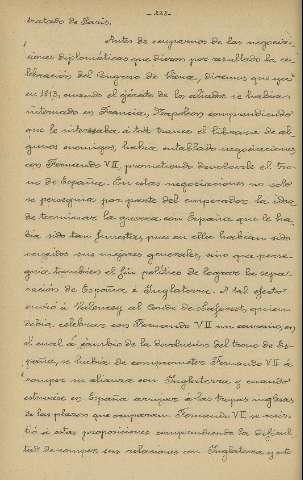 -222-
tratado de Paris.
Antes de ocuparnos de las negocia-
ciones diplomáticas que dieron por resultado la ce-
lebración del Congreso de Viena, diremos que ya
en 1813, cuando el ejército de los aliados se había
internado en Francia, Napoleon comprendiendo
que le interesaba á todo trance el librarse de al-
gunos enemigos, había entablado negociaciones
con Fernando VII, prometiendo devolverle el tro-
no de España. Con estas negociaciones no solo
se perseguia por parte del emperador la idea
de terminar la guerra con España que le ha-
bia sido tan funesta, pues en ella habian sido
vencidos sus mejores generales, sino que perse-
guía tambien el fin politico de lograr la sepa-
ración de España é Inglaterra. A tal efecto
envió á Valencey al Conde de Laforest, quien
debia celebrar con Fernando VII un convenio, en
el cual á cambio de la devolucion del trono de Es-
paña, se habia de comprometer Fernando VII á
romper su alianza con Inglaterra, y cuando
estuviese en España arrojar á las tropas inglesas
de las plazas que ocupaban. Fernando VII se resis-
tió á estas proposiciones comprendiendo la dificul-
tad de romper sus relaciones con Inglaterra y ante